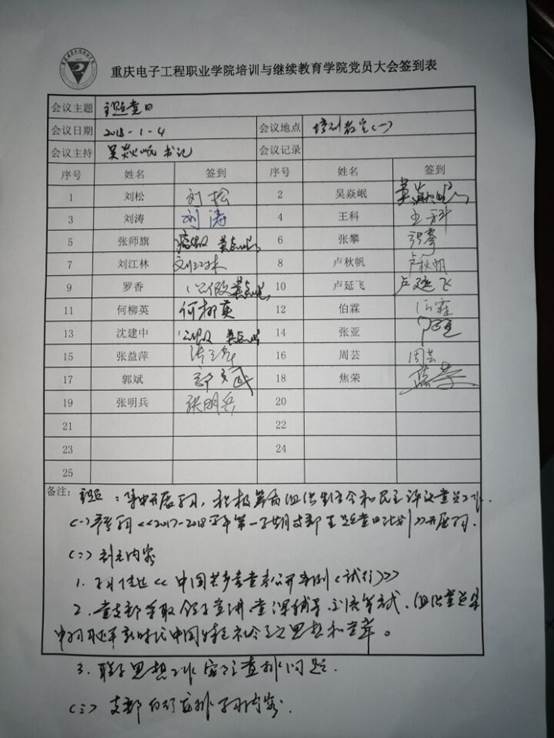 重庆电子工程职业学院培训与继续教育学院党员大会签到表
会议主题 主题党日
会议日期 2018-1-4 会议地点 培训教室(一)
会议主持 吴焱岷书记 会议记录
序号 姓名 签到 序号 姓名 签到
1 刘松 刘松 2 吴焱岷 吴焱岷
3 刘涛 刘涛 4 王科 王科
5 张师旗 6 张攀 张攀
7 刘江林 刘江林 8 卢秋帆 卢秋帆
9 罗香 10 卢延飞 卢延飞
11 何柳英 何柳英 12 伯霖 伯霖
13 沈建中 14 张亚
15 张益萍 张益萍 16 周芸 周芸
17 郭斌 郭斌 18 焦荣
19 张明兵 张明兵 20
21 22
23 24
25
备注: 主题: 开展学习, 积极筹备组织生活会和民主评议党员工作.
(一) 学习<<2017-2018学年第一学期支部主题党日计划>>开展学习.
(二) 主要内容
1. 《中国共产党党务公开条例(试行)》
2. 党支部采取领导宣讲 党课辅导 交流等方式, 组织党员集
中学习习近平新时代中国特色社会主义思想和党章。
3. 思想工作 查排问题.
(三) 支部自行安排学习内容.